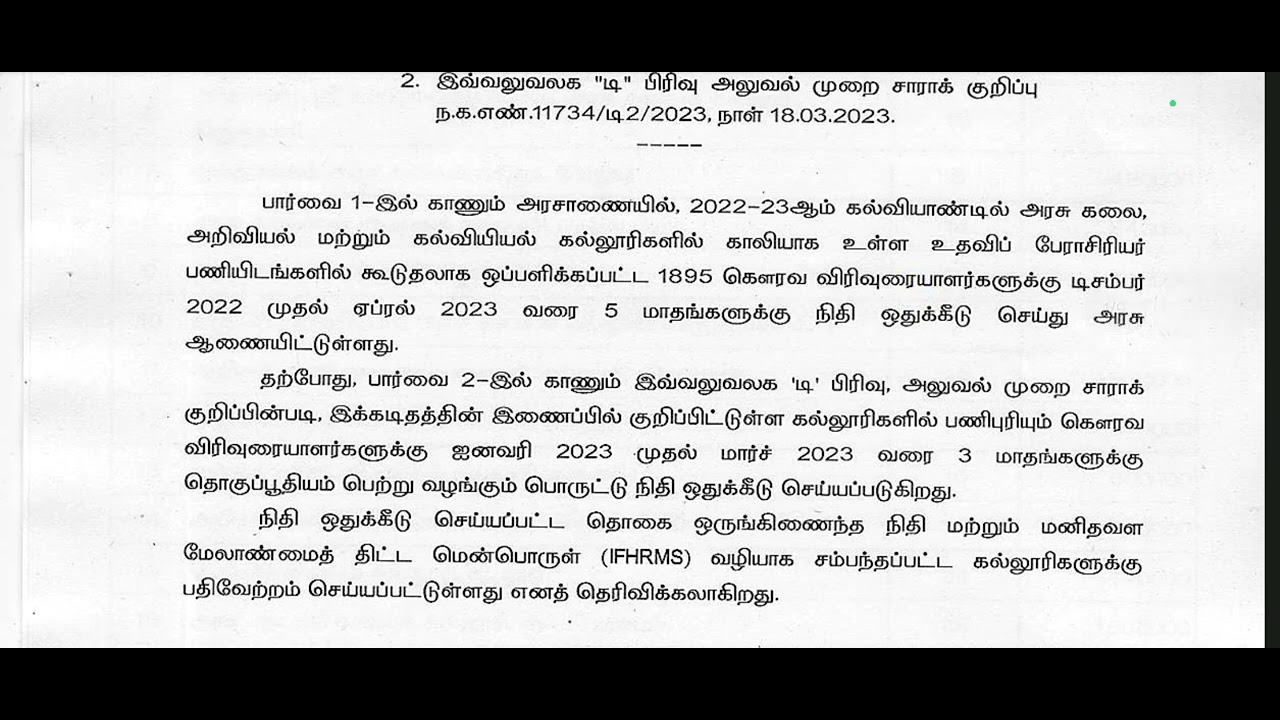 2. இவ்வலுவலக "டி" பிரிவு அலுவல் முறை சாராக் குறிப்பு
ந.க.எண்.11734/டி2/2023, நாள் 18.03.2023.
-----
பார்வை 1-இல் காணும் அரசாணையில், 2022-23ஆம் கல்வியாண்டில் அரசு கலை,
அறிவியல் மற்றும் கல்வியியல் கல்லூரிகளில் காலியாக உள்ள உதவிப் பேராசிரியர்
பணியிடங்களில் கூடுதலாக ஒப்பளிக்கப்பட்ட 1895 கௌரவ விரிவுரையாளர்களுக்கு டிசம்பர்
2022 முதல் ஏப்ரல் 2023 வரை 5 மாதங்களுக்கு நிதி ஒதுக்கீடு செய்து அரசு
ஆணையிட்டுள்ளது.
தற்போது, பார்வை 2-இல் காணும் இவ்வலுவலக 'டி' பிரிவு, அலுவல் முறை சாராக்
குறிப்பின்படி, இக்கடிதத்தின் இணைப்பில் குறிப்பிட்டுள்ள கல்லூரிகளில் பணிபுரியும் கௌரவ
விரிவுரையாளர்களுக்கு ஐனவரி 2023 முதல் மார்ச் 2023 வரை 3 மாதங்களுக்கு
தொகுப்பூதியம் பெற்று வழங்கும் பொருட்டு நிதி ஒதுக்கீடு செய்யப்படுகிறது.
நிதி ஒதுக்கீடு செய்யப்பட்ட தொகை ஒருங்கிணைந்த நிதி மற்றும் மனிதவள
மேலாண்மைத் திட்ட மென்பொருள் (IFHRMS) வழியாக சம்பந்தப்பட்ட கல்லூரிகளுக்கு
பதிவேற்றம் செய்யப்பட்டுள்ளது எனத் தெரிவிக்கலாகிறது.